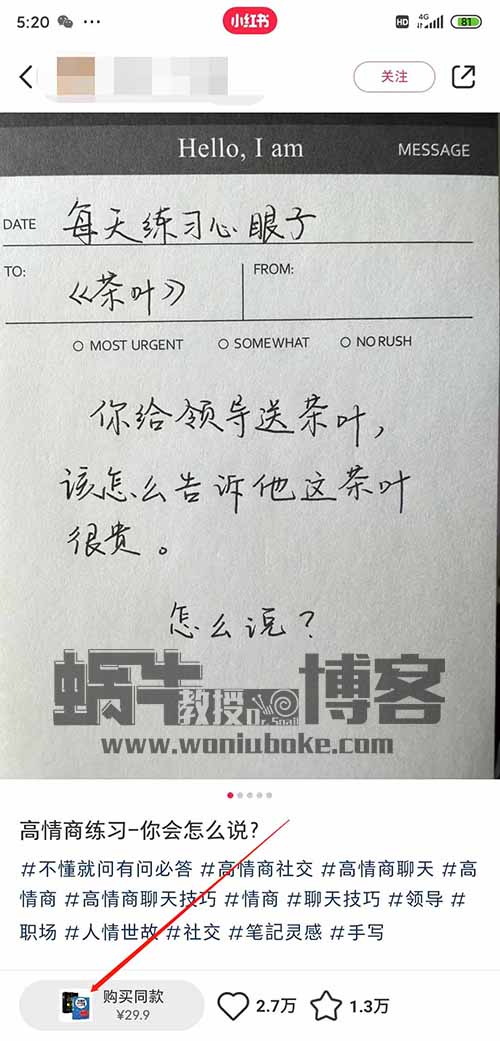 5:20
小红书
HD 4G 81
关注
Hello, I am MESSAGE
DATE 每天练习心眼子
TO: 《茶叶》 FROM:
MOST URGENT SOMEWHAT NO RUSH
你给领导送茶叶，
该怎么告诉他这茶叶
很贵。
怎么说？
蜗牛教授Dr.Snail博客
www.woniuboke.com
高情商练习-你会怎么说？
#不懂就问有问必答 #高情商社交 #高情商聊天 #高
情商 #高情商聊天技巧 #情商 #聊天技巧 #领导 #
职场 #人情世故 #社交 #笔記灵感 #手写
购买同款
¥29.9
2.7万 1.3万